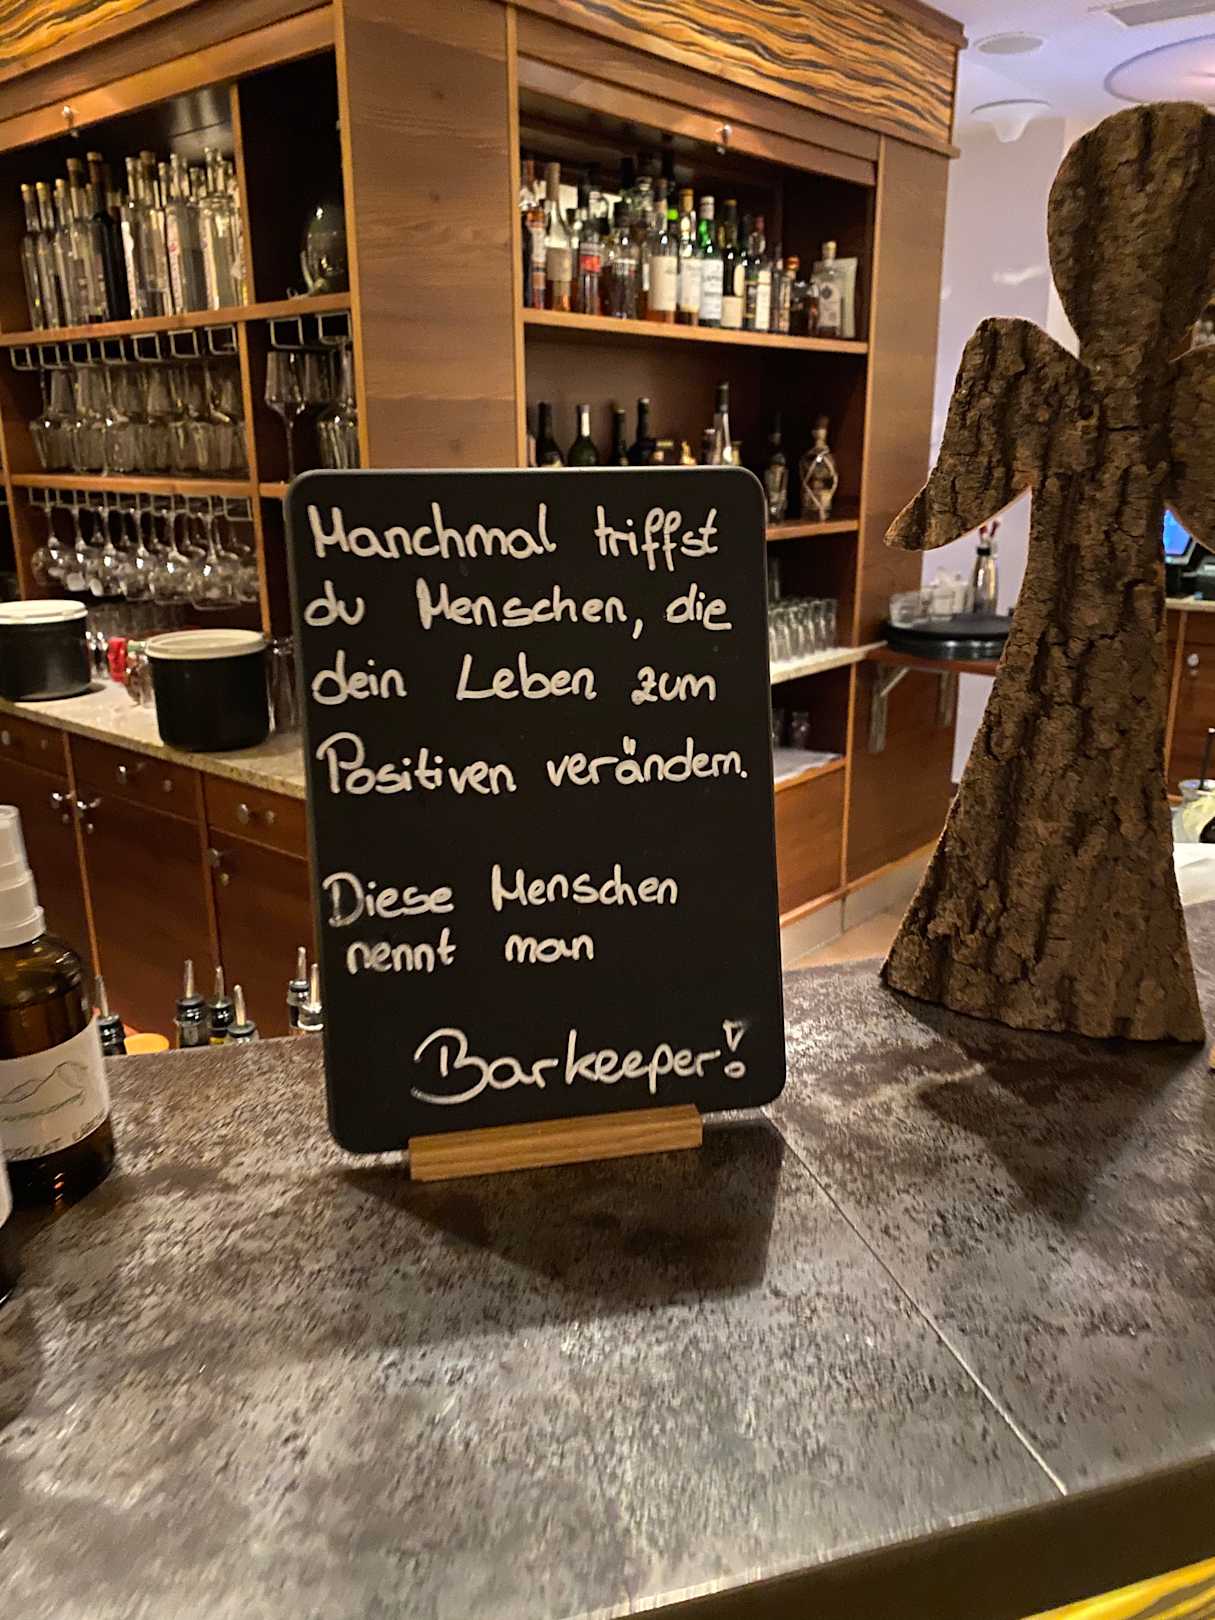 Manchmal triffst
du Menschen, die
dein Leben zum
Positiven verändern.
Diese Menschen
nennt man
Barkeeper!